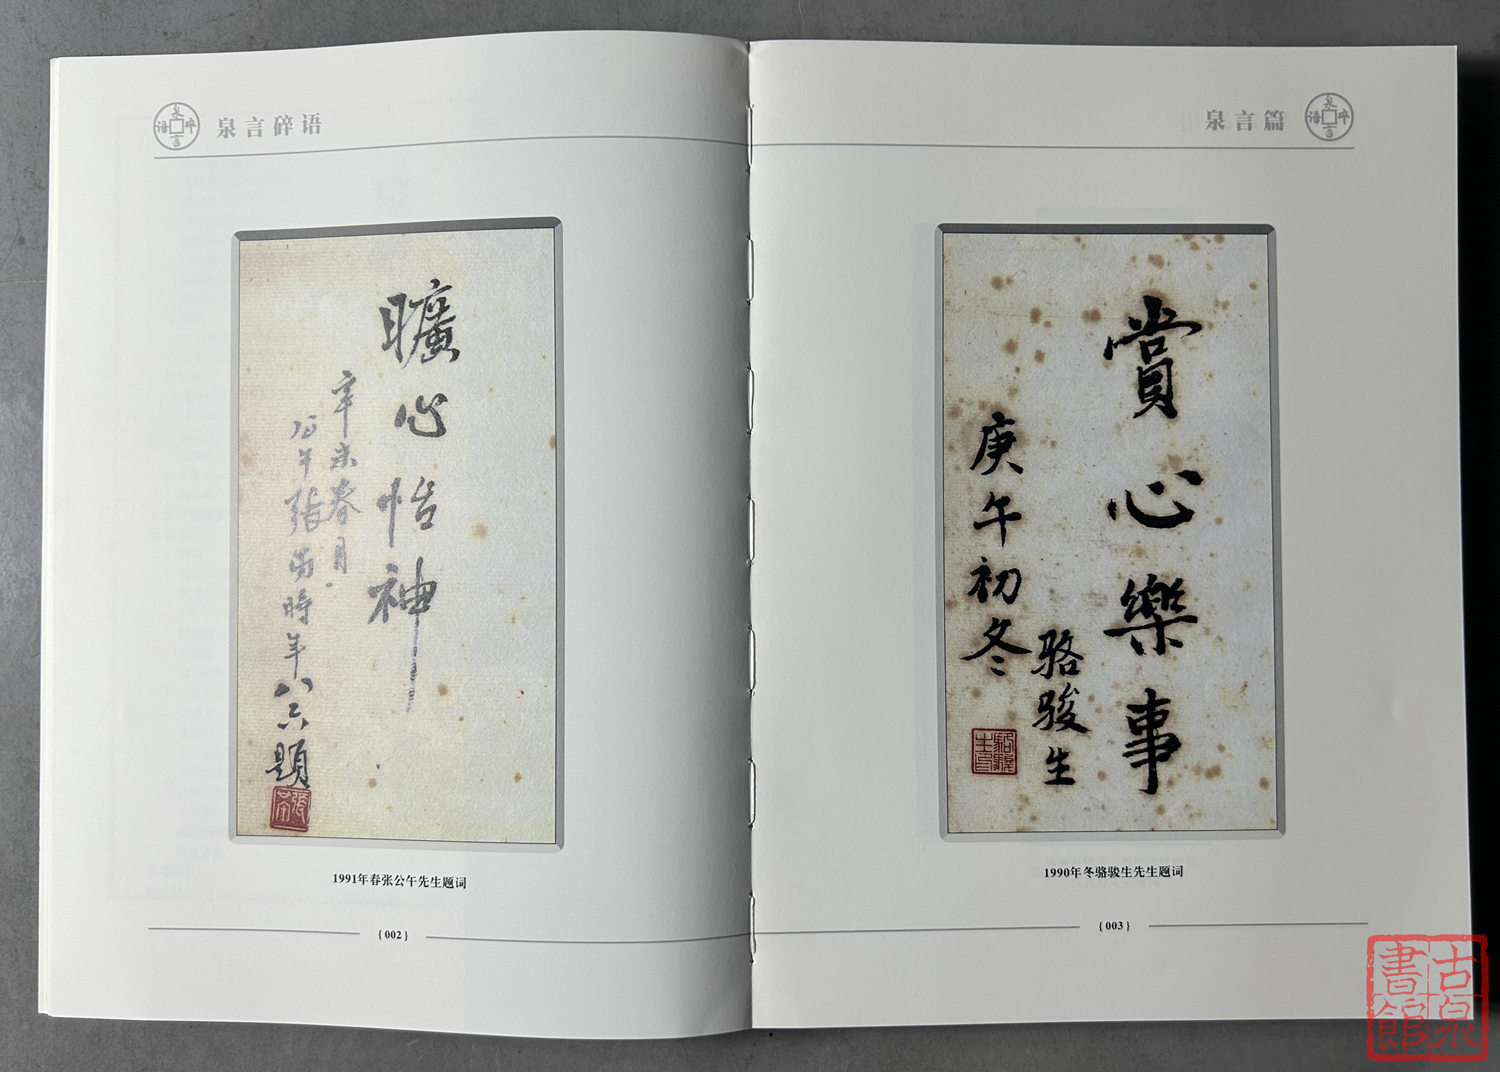 泉言碎语
泉言碎语
曠心怡神
辛未春月
公午張 時年八六題
1991年春张公午先生题词
{ 002 }
泉言篇
泉言碎语
賞心樂事
骆骏生
庚午初冬
駱駿生印
1990年冬骆骏生先生题词
{ 003 }
古泉書館